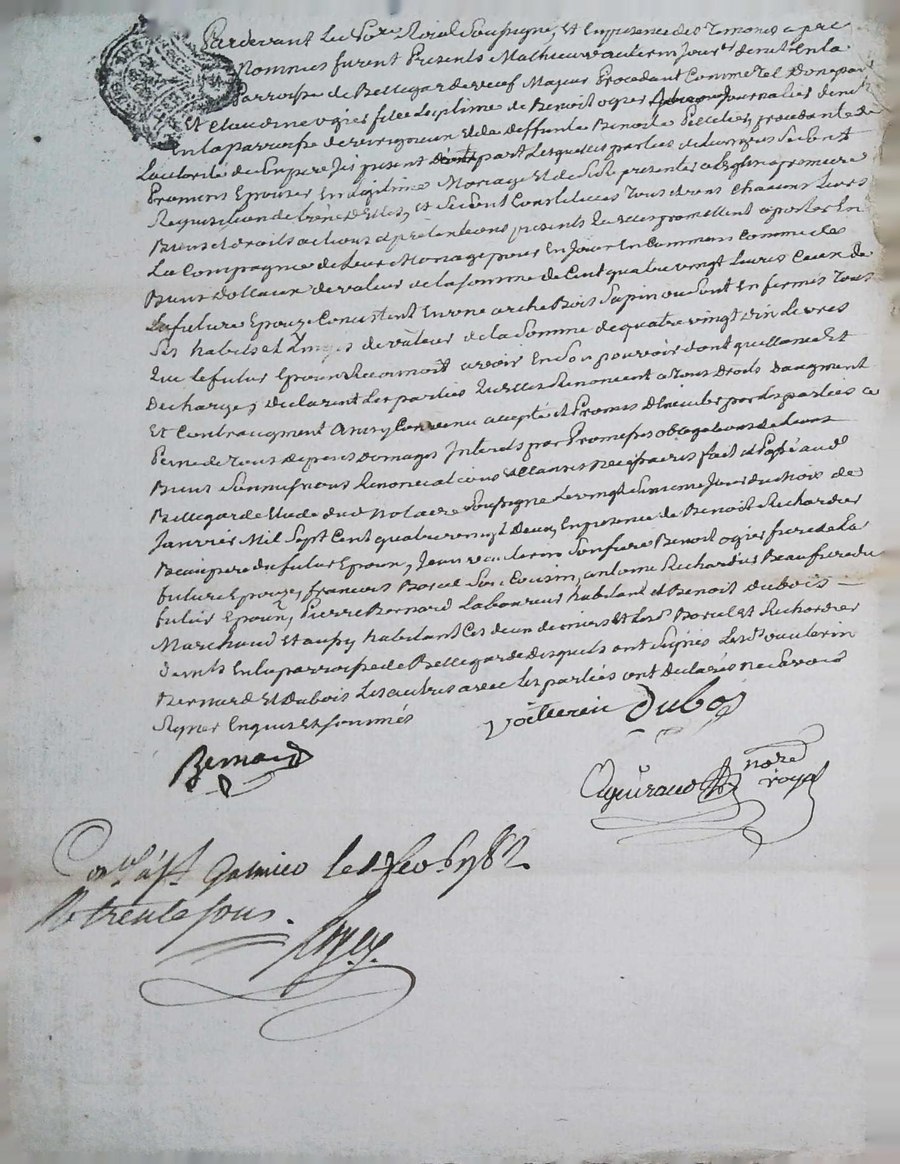 Pardevant Le No.re Royal Soussigné, Et En presence des Temoins apre
Nommes furent Presents Mathieu vauterin Jour.r demt En la
Parroisse de Bellegarde veuf Majeur Procedant Comme tel Donepart
Et Claudine ogier fille Legitime de Benoit ogier Journalier dem.t
En la parroisse de et de deffunte Benoite procedante de
L'autorité de Sonpere Jcy present d'autre part Lesquelles parties de Leurs gres Se Sont
Promises Epouser En Legitime Mariage Et de Se Presenter a L'eglise a premiere
Requisition de L'une d'Elles, Et Se Sont Constitues Tous Et uns Chacuns Leurs
Biens Et droits actions Et pretentions presents qu'elles promettent aporter En
La Compagnie de Leur Mariage pour En Jouir En Commun Comme de
Biens Dotteaux de valeur de La somme de Cent quatre vingt Livres Ceux de
La future Epouze Consistent En une arche Bois Sapin ou Sont En fermes Tous
Ses habits et Linges de valeur de la Somme de quatre vingt dix Livres
Que Le futur Epoux Reconnoit avoir En Son pouvoir dont quittance Et
Decharge, declarent Les parties qu'elles Renoncent a Tous Droits d'augment
Et Contraugment Ainsy Convenu accepté Et Promis d'executer par Les parties a
Peine de Tous depens Domages Interets par Promesses obligations de Leurs
Biens Renonciations Et Clauses Necessaires fait Et Passé aud.
Bellegarde Etude dud Notaire Soussigné Le vingt Jour du Mois de
Janvier Mil Sept Cent quatre vingt Deux, En presence de Benoit Richardier
Beaupere du futur Epoux, Jean vauterin Son frere Benoit ogier frere de La
future Epouze, françois Boreal Son Cousin, antoine Richardier Beaufrere du
futur Epoux, Pierre Bernard Laboureur habitant Et Benoit Dubois
Marchand Et aussy habitant Ces deux derniers Et Les Boreal et Richardier
Demts En la parroisse de Bellegarde desquels ont Signes Les d. vauterin
Bernard Et Dubois Les autres avec Les parties ont Declarés ne Savoir
Signer Enquis Et Sommés
vauterin Dubois
Bernard
no.re
royal
Con.lé à St Galmier le 1782
R. trente sous.